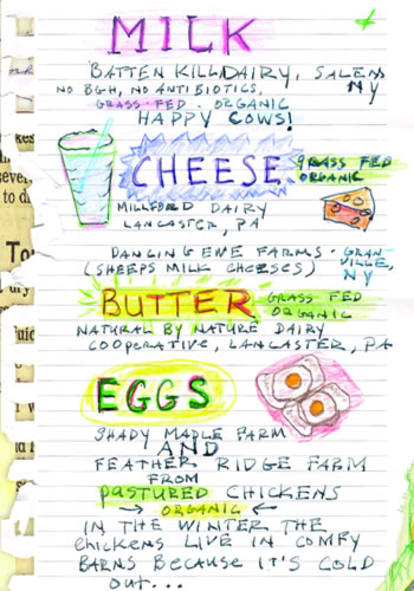 MILK
BATTEN KILL DAIRY, SALEM
NY
NO BGH, NO ANTIBIOTICS,
GRASS-FED · ORGANIC
HAPPY COWS!
CHEESE
GRASS FED
ORGANIC
MILLFORD DAIRY
LANCASTER, PA
DANCING EWE FARMS · GRAN
VILLE,
NY
(SHEEPS MILK CHEESES)
BUTTER
GRASS FED
ORGANIC
NATURAL BY NATURE DAIRY
COOPERATIVE, LANCASTER, PA
EGGS
SHADY MAPLE FARM
AND
FEATHER RIDGE FARM
FROM
PASTURED CHICKENS
→ ORGANIC ←
IN THE WINTER THE
chickens LIVE IN COMFY
BARNS BECAUSE IT'S COLD
OUT...